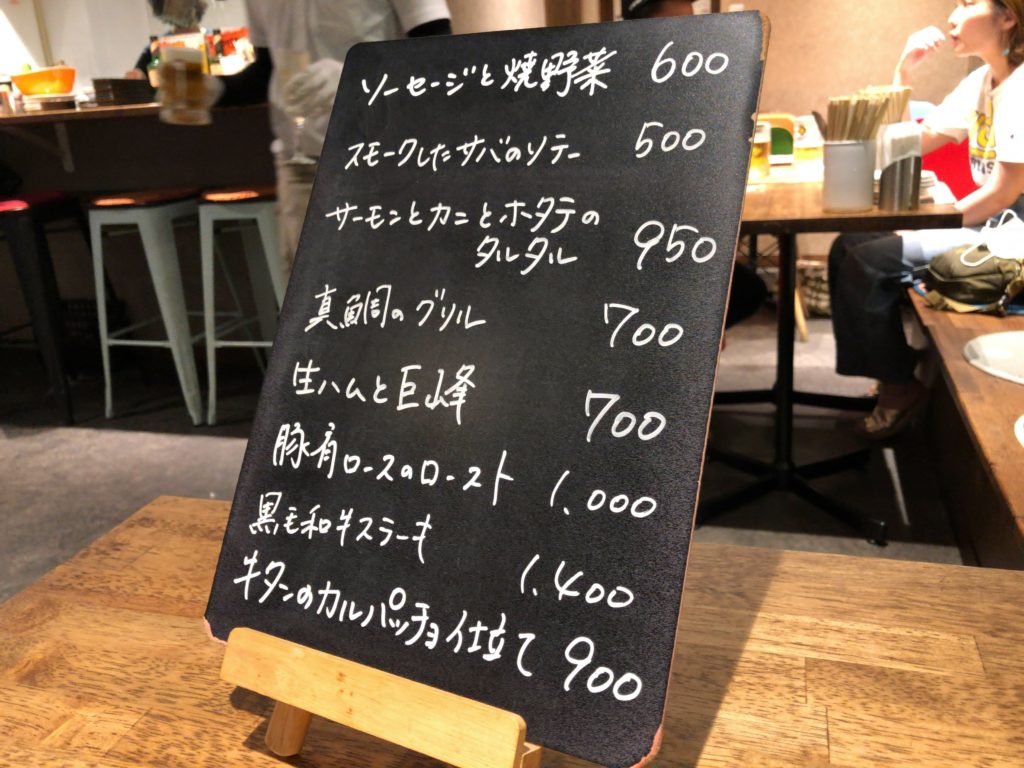 ソーセージと焼野菜 600
スモークしたサバのソテー 500
サーモンとカニとホタテの
タルタル 950
真鯛のグリル 700
生ハムと巨峰 700
豚肩ロースのロースト 1.000
黒毛和牛ステーキ 1.400
牛タンのカルパッチョ仕立て 900